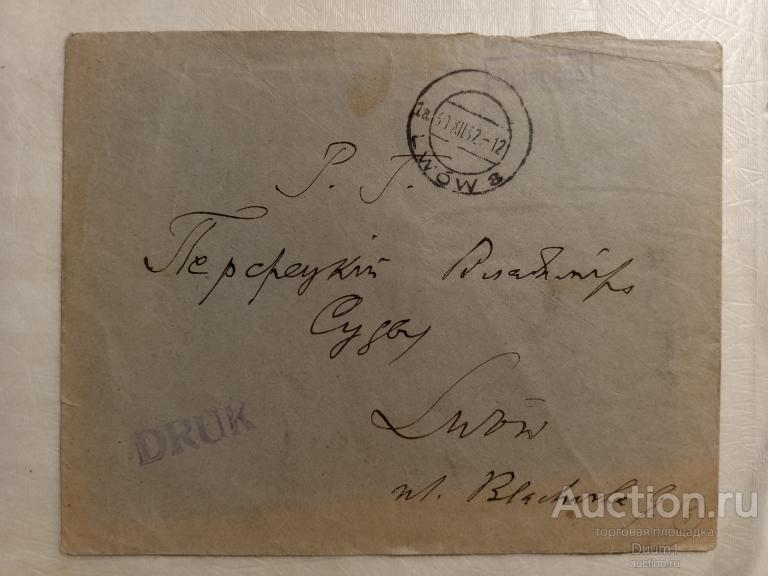 1a 30 XII 32 - 12
LWÓW 8
P. T.
Перфецкій Владиміръ
Судья
DRUK
Lwów
ul. Blacharska
Auction.ru
торговая площадка
Duum1
auction.ru